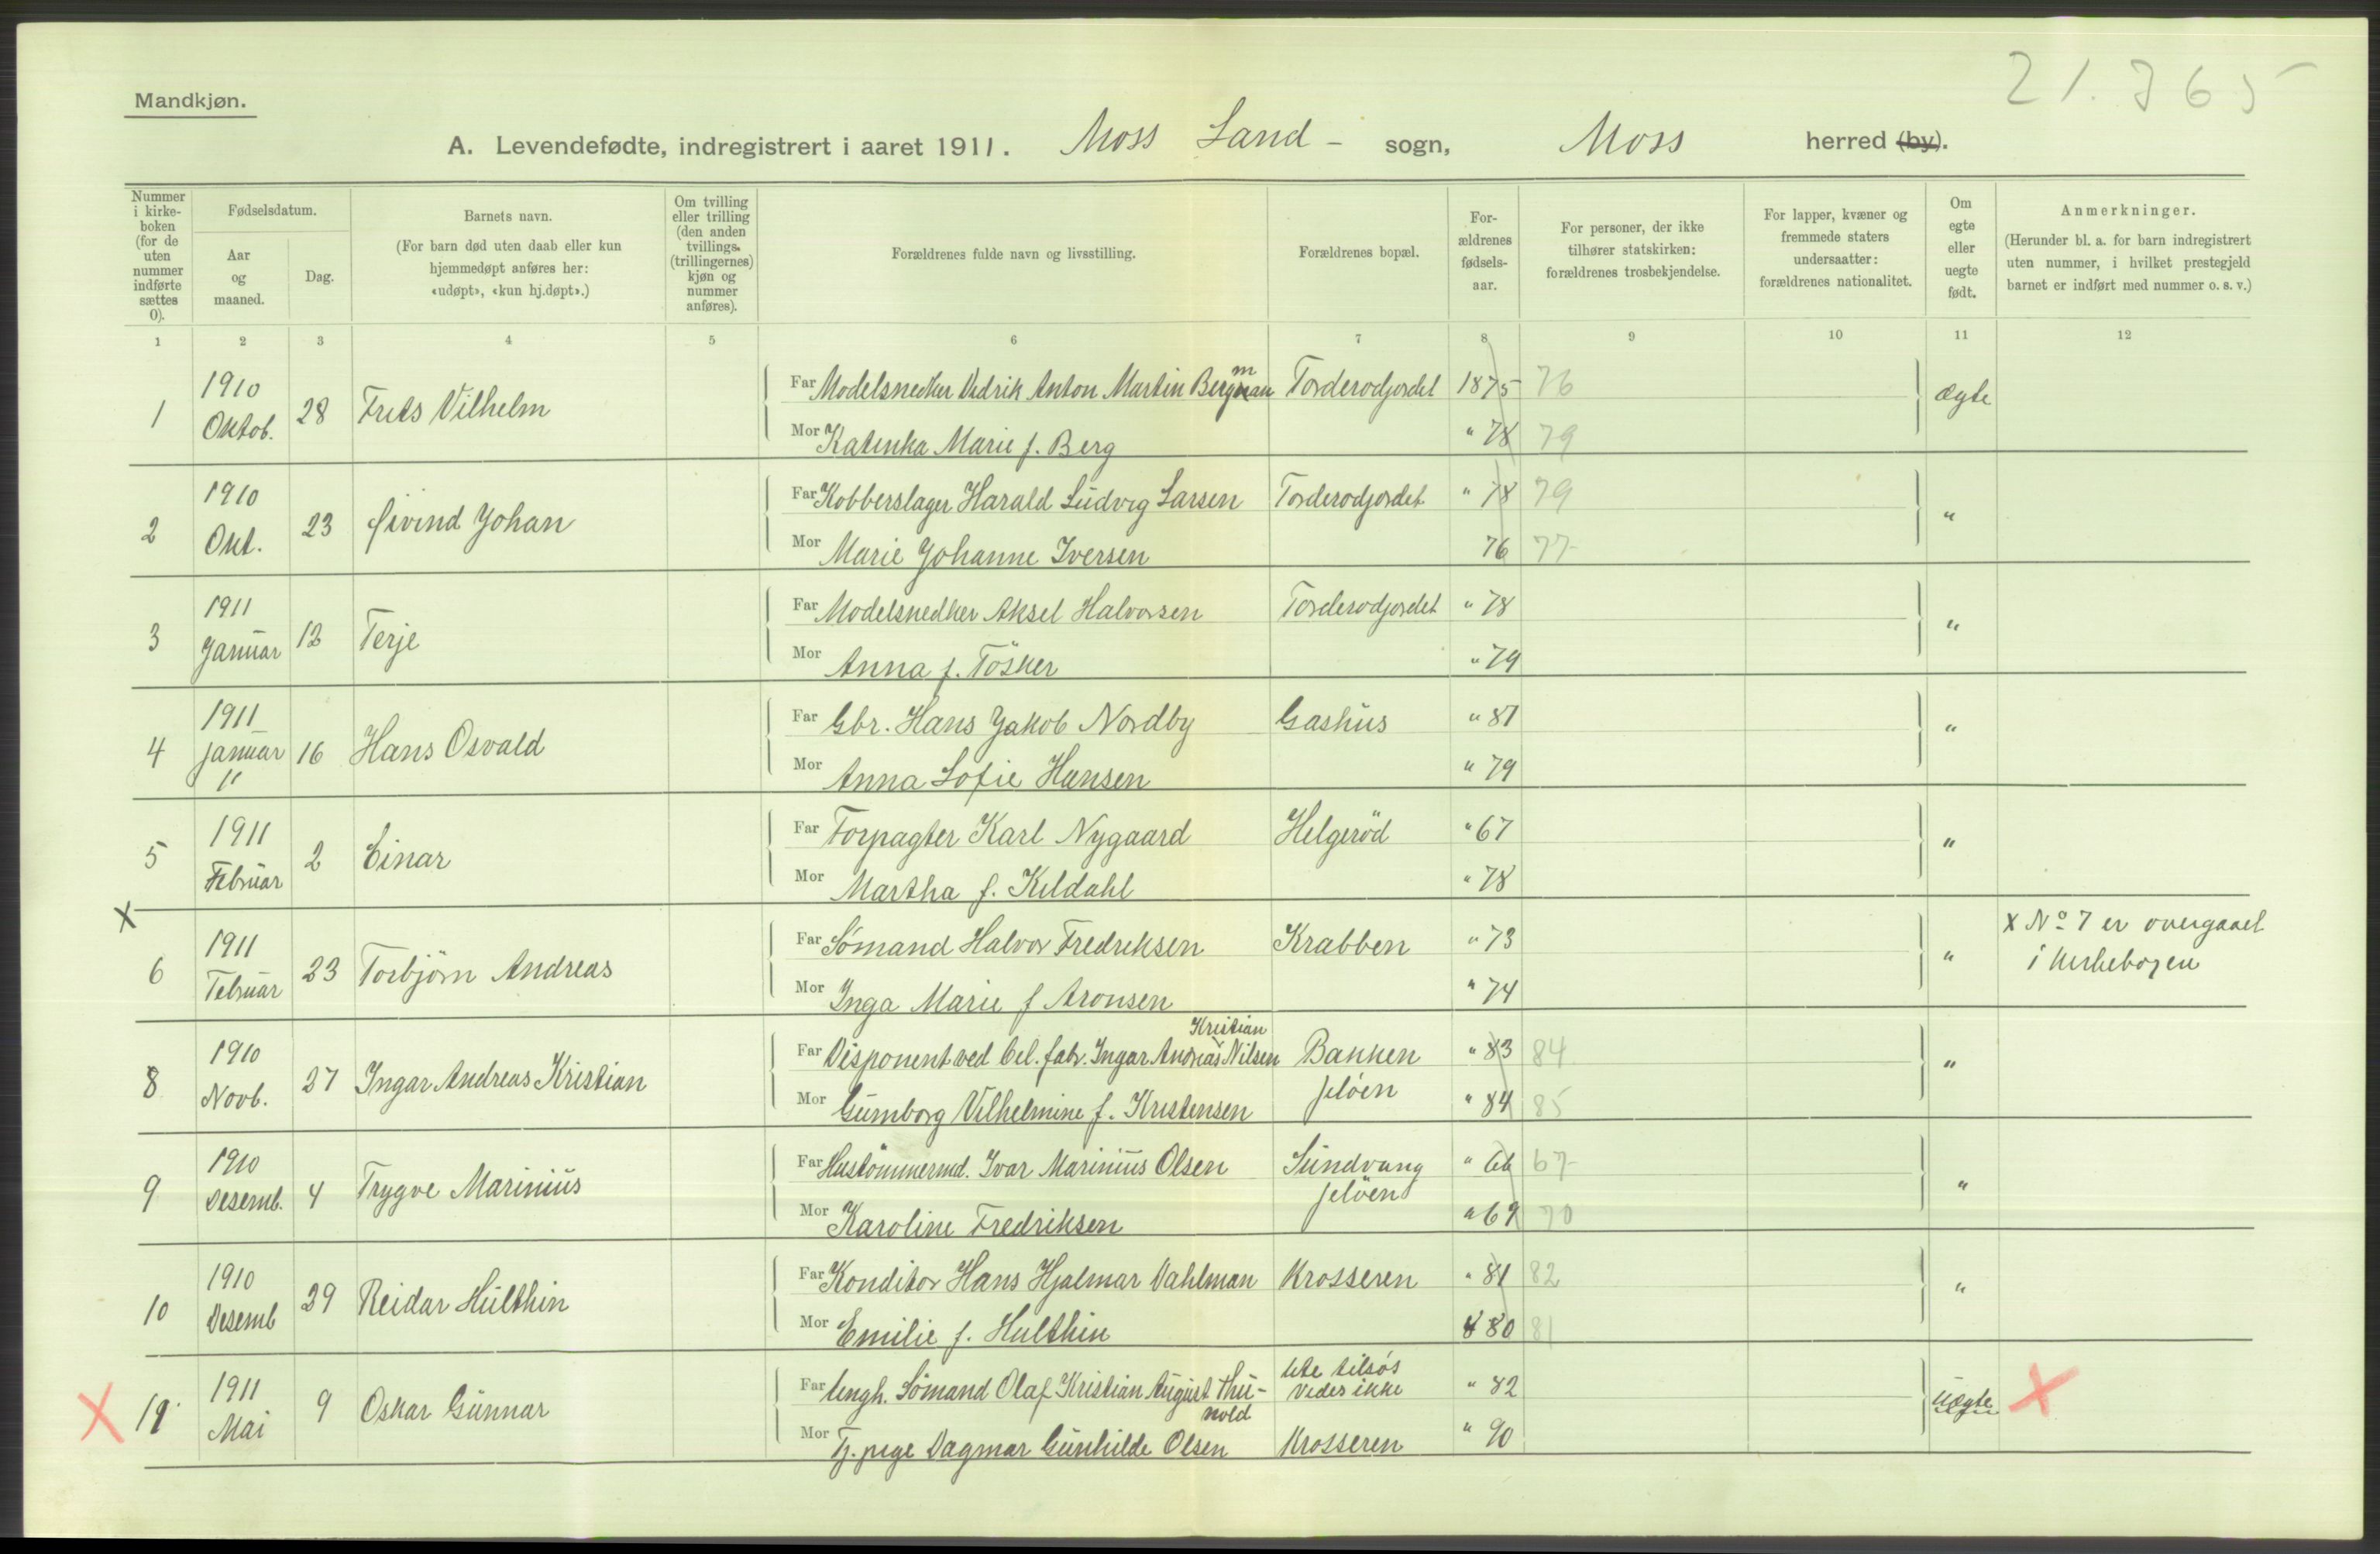 21.365
Mandkjøn.
A. Levendefødte, indregistrert i aaret 1911. Moss Land - sogn, Moss herred (by).
Nummer i kirke-boken (for de uten nummer indførte sættes 0).
Fødselsdatum.
Aar og maaned.
Dag.
Barnets navn.
(For barn død uten daab eller kun hjemmedøpt anføres her: «udøpt», «kun hj.døpt».)
Om tvilling eller trilling (den anden tvillings. (trillingernes) kjøn og nummer anføres).
Forældrenes fulde navn og livsstilling.
Forældrenes bopæl.
For-ældrenes fødsels-aar.
For personer, der ikke tilhører statskirken: forældrenes trosbekjendelse.
For lapper, kvæner og fremmede staters undersaatter: forældrenes nationalitet.
Om egte eller uegte født.
Anmerkninger.
(Herunder bl. a. for barn indregistrert uten nummer, i hvilket prestegjeld barnet er indført med nummer o. s. v.)
1 2 3 4 5 6 7 8 9 10 11 12
1 1910 Oktob. 28 Frits Vilhelm
Far Modelsnedker Didrik Anton Martin Bergman m Torderødjordet 1875 76 Ægte
Mor Katinka Marie f. Berg " 78 79
2 1910 Okt. 23 Øivind Johan
Far Kobberslager Harald Ludvig Larsen Torderødjordet " 78 79 "
Mor Marie Johanne Iversen 76 77
3 1911 Januar 12 Terje
Far Modelsnedker Aksel Halvorsen Torderødjordet " 78 "
Mor Anna f. Tösker " 79
4 1911 Januar 16 Hans Osvald
"
Far Gbr. Hans Jakob Nordby Gashus " 81 "
Mor Anna Sofie Hansen " 79
5 1911 Februar 2 Einar
Far Forpagter Karl Nygaard Helgerød " 67 "
Mor Martha f. Kildahl " 78
x
6 1911 Februar 23 Torbjörn Andreas
Far Sömand Halvor Fredriksen Krabben " 73 "
Mor Inga Marie f Aronsen " 74
x No 7 er overgaaet
i kirkebogen
8 1910 Novb. 27 Ingar Andreas Kristian
Kristian
Far Disponent ved Cel. fabr. Ingar Andreas Nilsen Bakken " 83 84 "
Jelöen
Mor Gumborg Vilhelmine f. Kristensen " 84 85
9 1910 Desemb. 4 Trygve Marinius
Far Hustömmermd. Ivar Marinius Olsen Sundvang " 66 67 "
Jelöen
Mor Karoline Fredriksen " 69 70
10 1910 Desemb 29 Reidar Hulthin
Far Konditor Hans Hjalmar Dahlman Krosseren " 81 82 "
Mor Emilie f. Hulthin " 80 81
X 19 1911 Mai 9 Oskar Gunnar
Far Ungk. Sömand Olaf Kristian August Thu-
nold
Ute tilsøs
Vides ikke " 82 Uægte X
Mor Tj. pige Dagmar Gunhilde Olsen Krosseren " 90